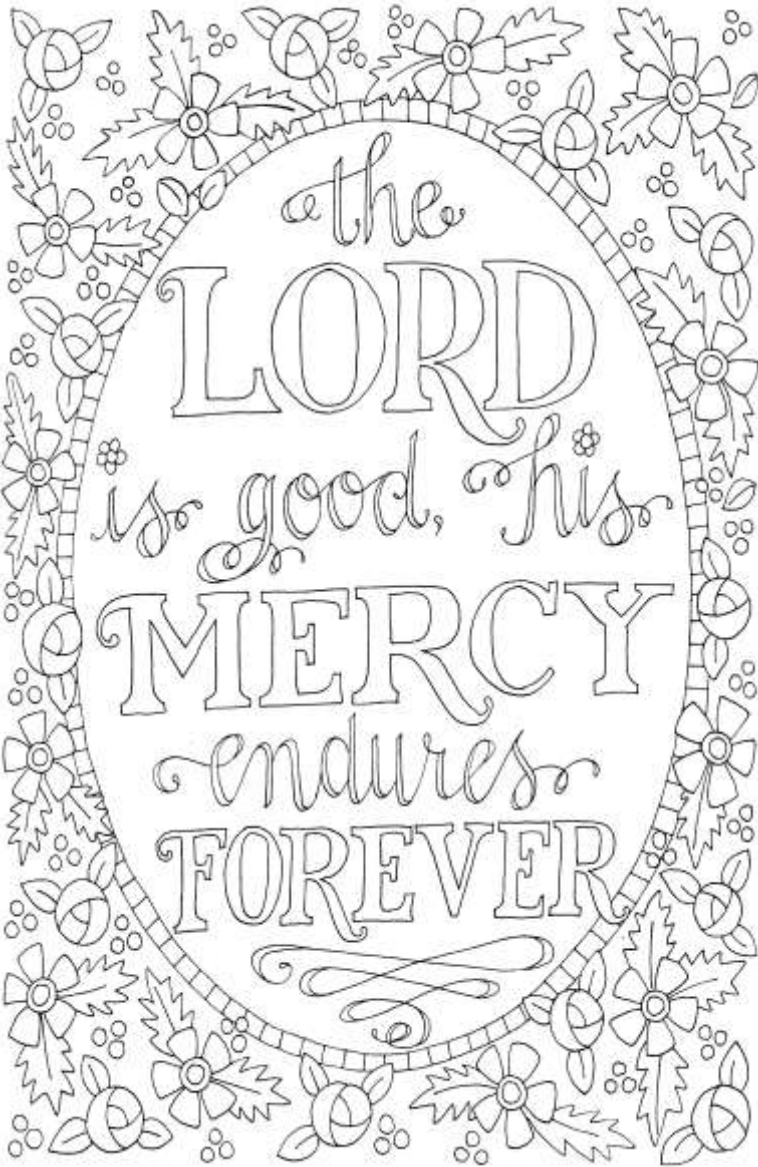 the
LORD
is good, his
MERCY
endures
FOREVER